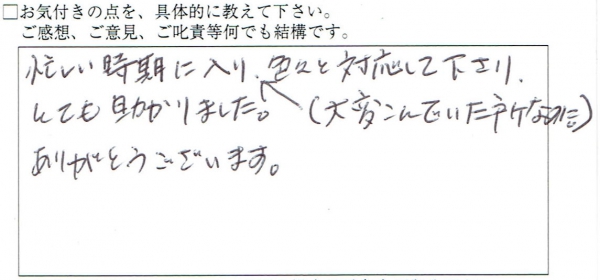 □お気付きの点を、具体的に教えて下さい。
ご感想、ご意見、ご叱責等何でも結構です。
忙しい時期に入り、色々と対応して下さり、
とても助かりました。(大変こんでいたみたいなのに)
ありがとうございます。